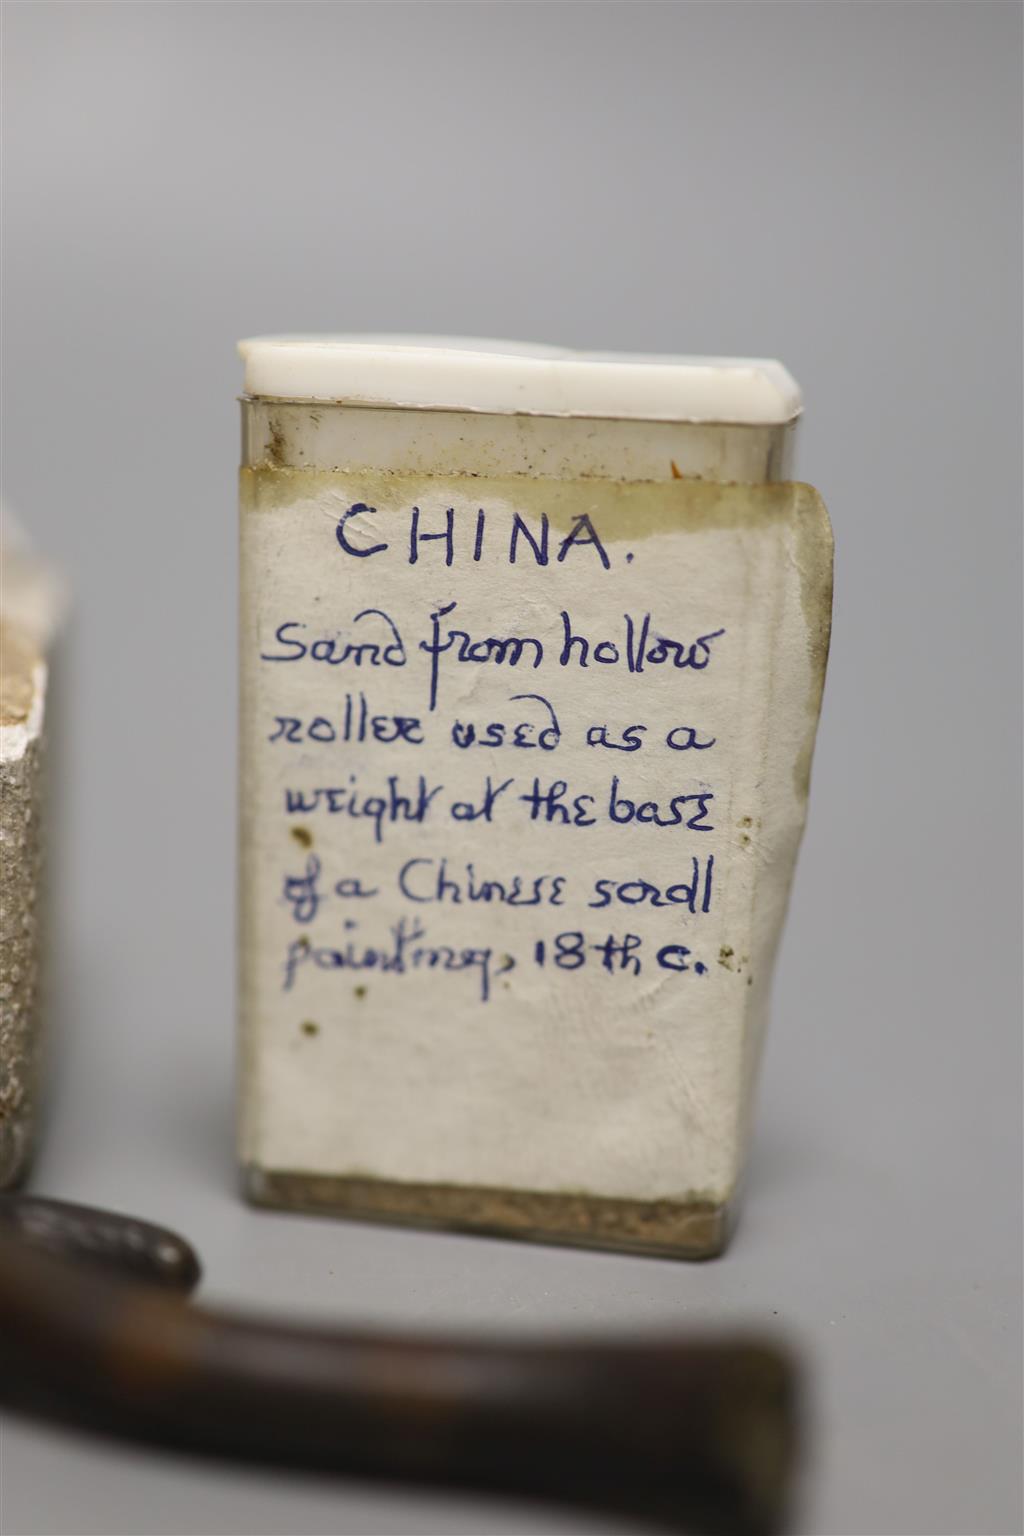 CHINA.
Sand from hollow
roller used as a
weight at the base
of a Chinese scroll
painting, 18th c.